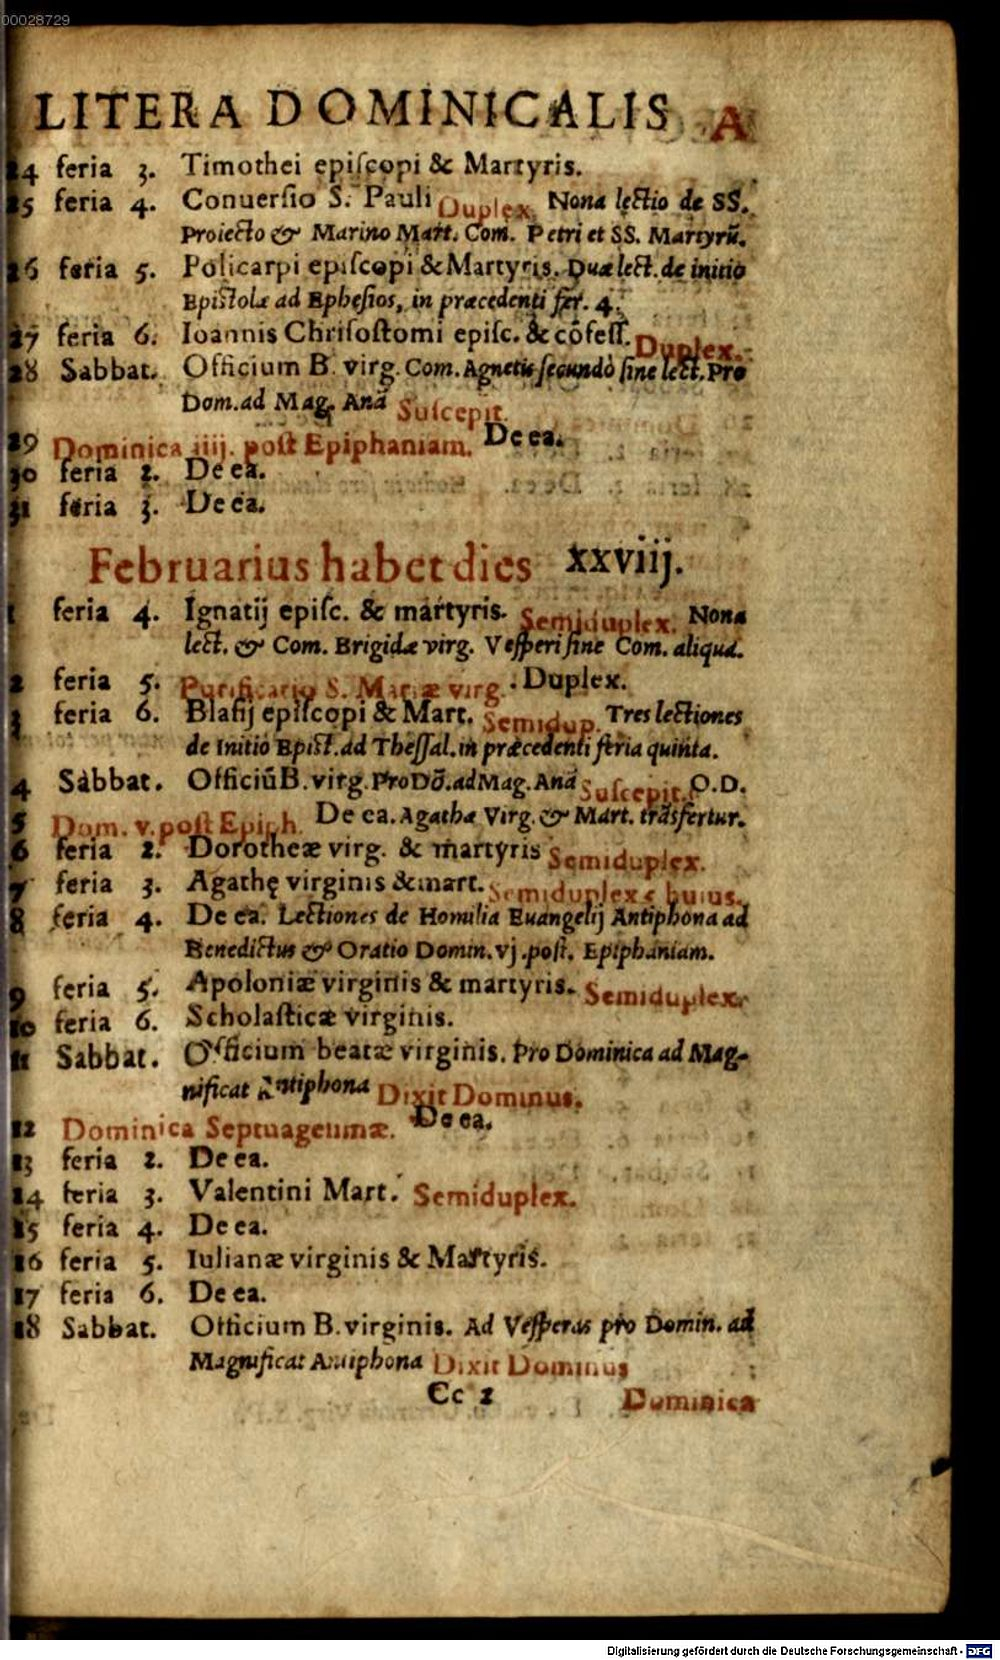 00028729
LITERA DOMINICALIS A
24 feria 3. Timothei epiſcopi & Martyris.
25 feria 4. Conuerſio S. Pauli Duplex. Nona lectio de SS.
Proiecto & Marino Mart. Com. Petri et SS. Martyrũ.
26 feria 5. Policarpi epiſcopi & Martyris. Duæ lect. de initio
Epiſtolæ ad Epheſios, in præcedenti fer. 4.
27 feria 6. Ioannis Chriſoſtomi epiſc. & cõfeſſ. Duplex.
28 Sabbat. Officium B. virg. Com. Agnetis ſecundò ſine lect. Pro
Dom. ad Mag. Anã Suſcepit.
29 Dominica iiij. poſt Epiphaniam. De ea.
30 feria 2. De ea.
31 feria 3. De ea.
Februarius habet dies xxviij.
1 feria 4. Ignatij epiſc. & martyris. Semiduplex. Nona
lect. & Com. Brigidæ virg. Veſperi ſine Com. aliqua.
2 feria 5. Purificatio S. Mariæ virg. Duplex.
3 feria 6. Blaſij epiſcopi & Mart. Semidup. Tres lectiones
de Initio Epiſt. ad Theſſal. in præcedenti feria quinta.
4 Sabbat. Officiũ B. virg. Pro Dõ. ad Mag. Anã Suſcepit. O.D.
5 Dom. v. poſt Epiph. De ea. Agathæ Virg. & Mart. trãsfertur.
6 feria 2. Dorotheæ virg. & martyris Semiduplex.
7 feria 3. Agathę virginis & mart. Semiduplex 5 huius.
8 feria 4. De ea. Lectiones de Homilia Euangelij Antiphona ad
Benedictus & Oratio Domin. vj. poſt. Epiphaniam.
9 feria 5. Apoloniæ virginis & martyris. Semiduplex.
10 feria 6. Scholaſticæ virginis.
11 Sabbat. Officium beatæ virginis. Pro Dominica ad Mag-
nificat Antiphona Dixit Dominus.
12 Dominica Septuagesimæ. De ea.
13 feria 2. De ea.
14 feria 3. Valentini Mart. Semiduplex.
15 feria 4. De ea.
16 feria 5. Iulianæ virginis & Martyris.
17 feria 6. De ea.
18 Sabbat. Officium B. virginis. Ad Veſperas pro Domin. ad
Magnificat Antiphona Dixit Dominus
Cc 2 Dominica
Digitalisierung gefördert durch die Deutsche Forschungsgemeinschaft - DFG